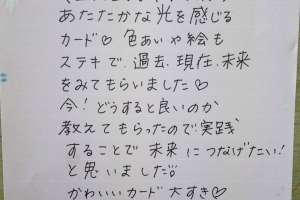 あたたかな光を感じる
カード♡ 色あいや絵も
ステキで、過去、現在、未来
をみてもらいました♡
今！どうすると良いのか
教えてもらったので実践
することで未来につなげたい！
と思いました。
かわいいカード大すき♡